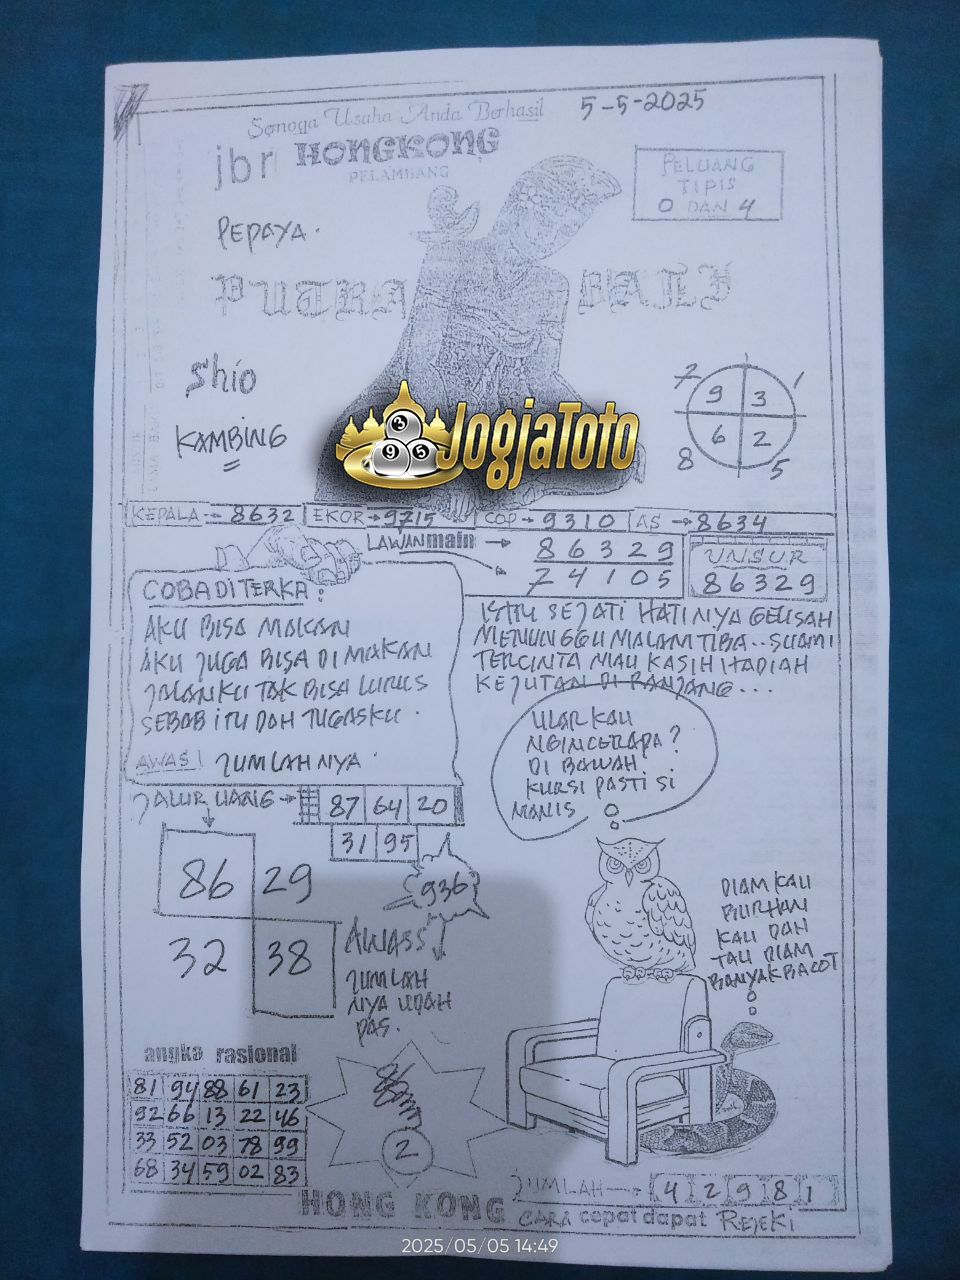 Semoga Usaha Anda Berhasil
5-5-2025
jbr HONGKONG
PELAMBANG
PELUANG
TIPIS
0 DAN 4
PEPAYA.
PUTRA BALI
Shio
KAMBING
7 1
9 3
6 2
8 5
JogjaToto
3
9 5
KEPALA → 8632 EKOR → 9715 COP → 9310 AS → 8634
LAWAN main → 86329
74105
UNSUR
86329
COBA DITERKA:
AKU BISA MAKAN
AKU JUGA BISA DI MAKAN
JALANKU TAK BISA LURUS
SEBAB ITU DAH TUGASKU.
AWAS! JUMLAHNYA.
ISTRI SEJATI HATINYA GELISAH
MENUNGGU MALAM TIBA.. SUAMI
TERCINTA MAU KASIH HADIAH
KEJUTAN DI RANJANG...
ULAR KAU
NGINCER APA?
DI BAWAH
KURSI PASTI SI
MANIS
JALUR UANG → 87 64 20
31 95
86 29
32 38
936
AWASS
JUMLAH
NYA UDAH
PAS.
DIAM KAU
KAU DAH
TAU DIAM
BANYAK BACOT
angka rasional
81 94 88 61 23
92 66 13 22 46
33 52 03 78 99
68 34 59 02 83
2
JUMLAH → 4 2 9 8 1
HONG KONG CARA cepat dapat REJEKI
2025/05/05 14:49